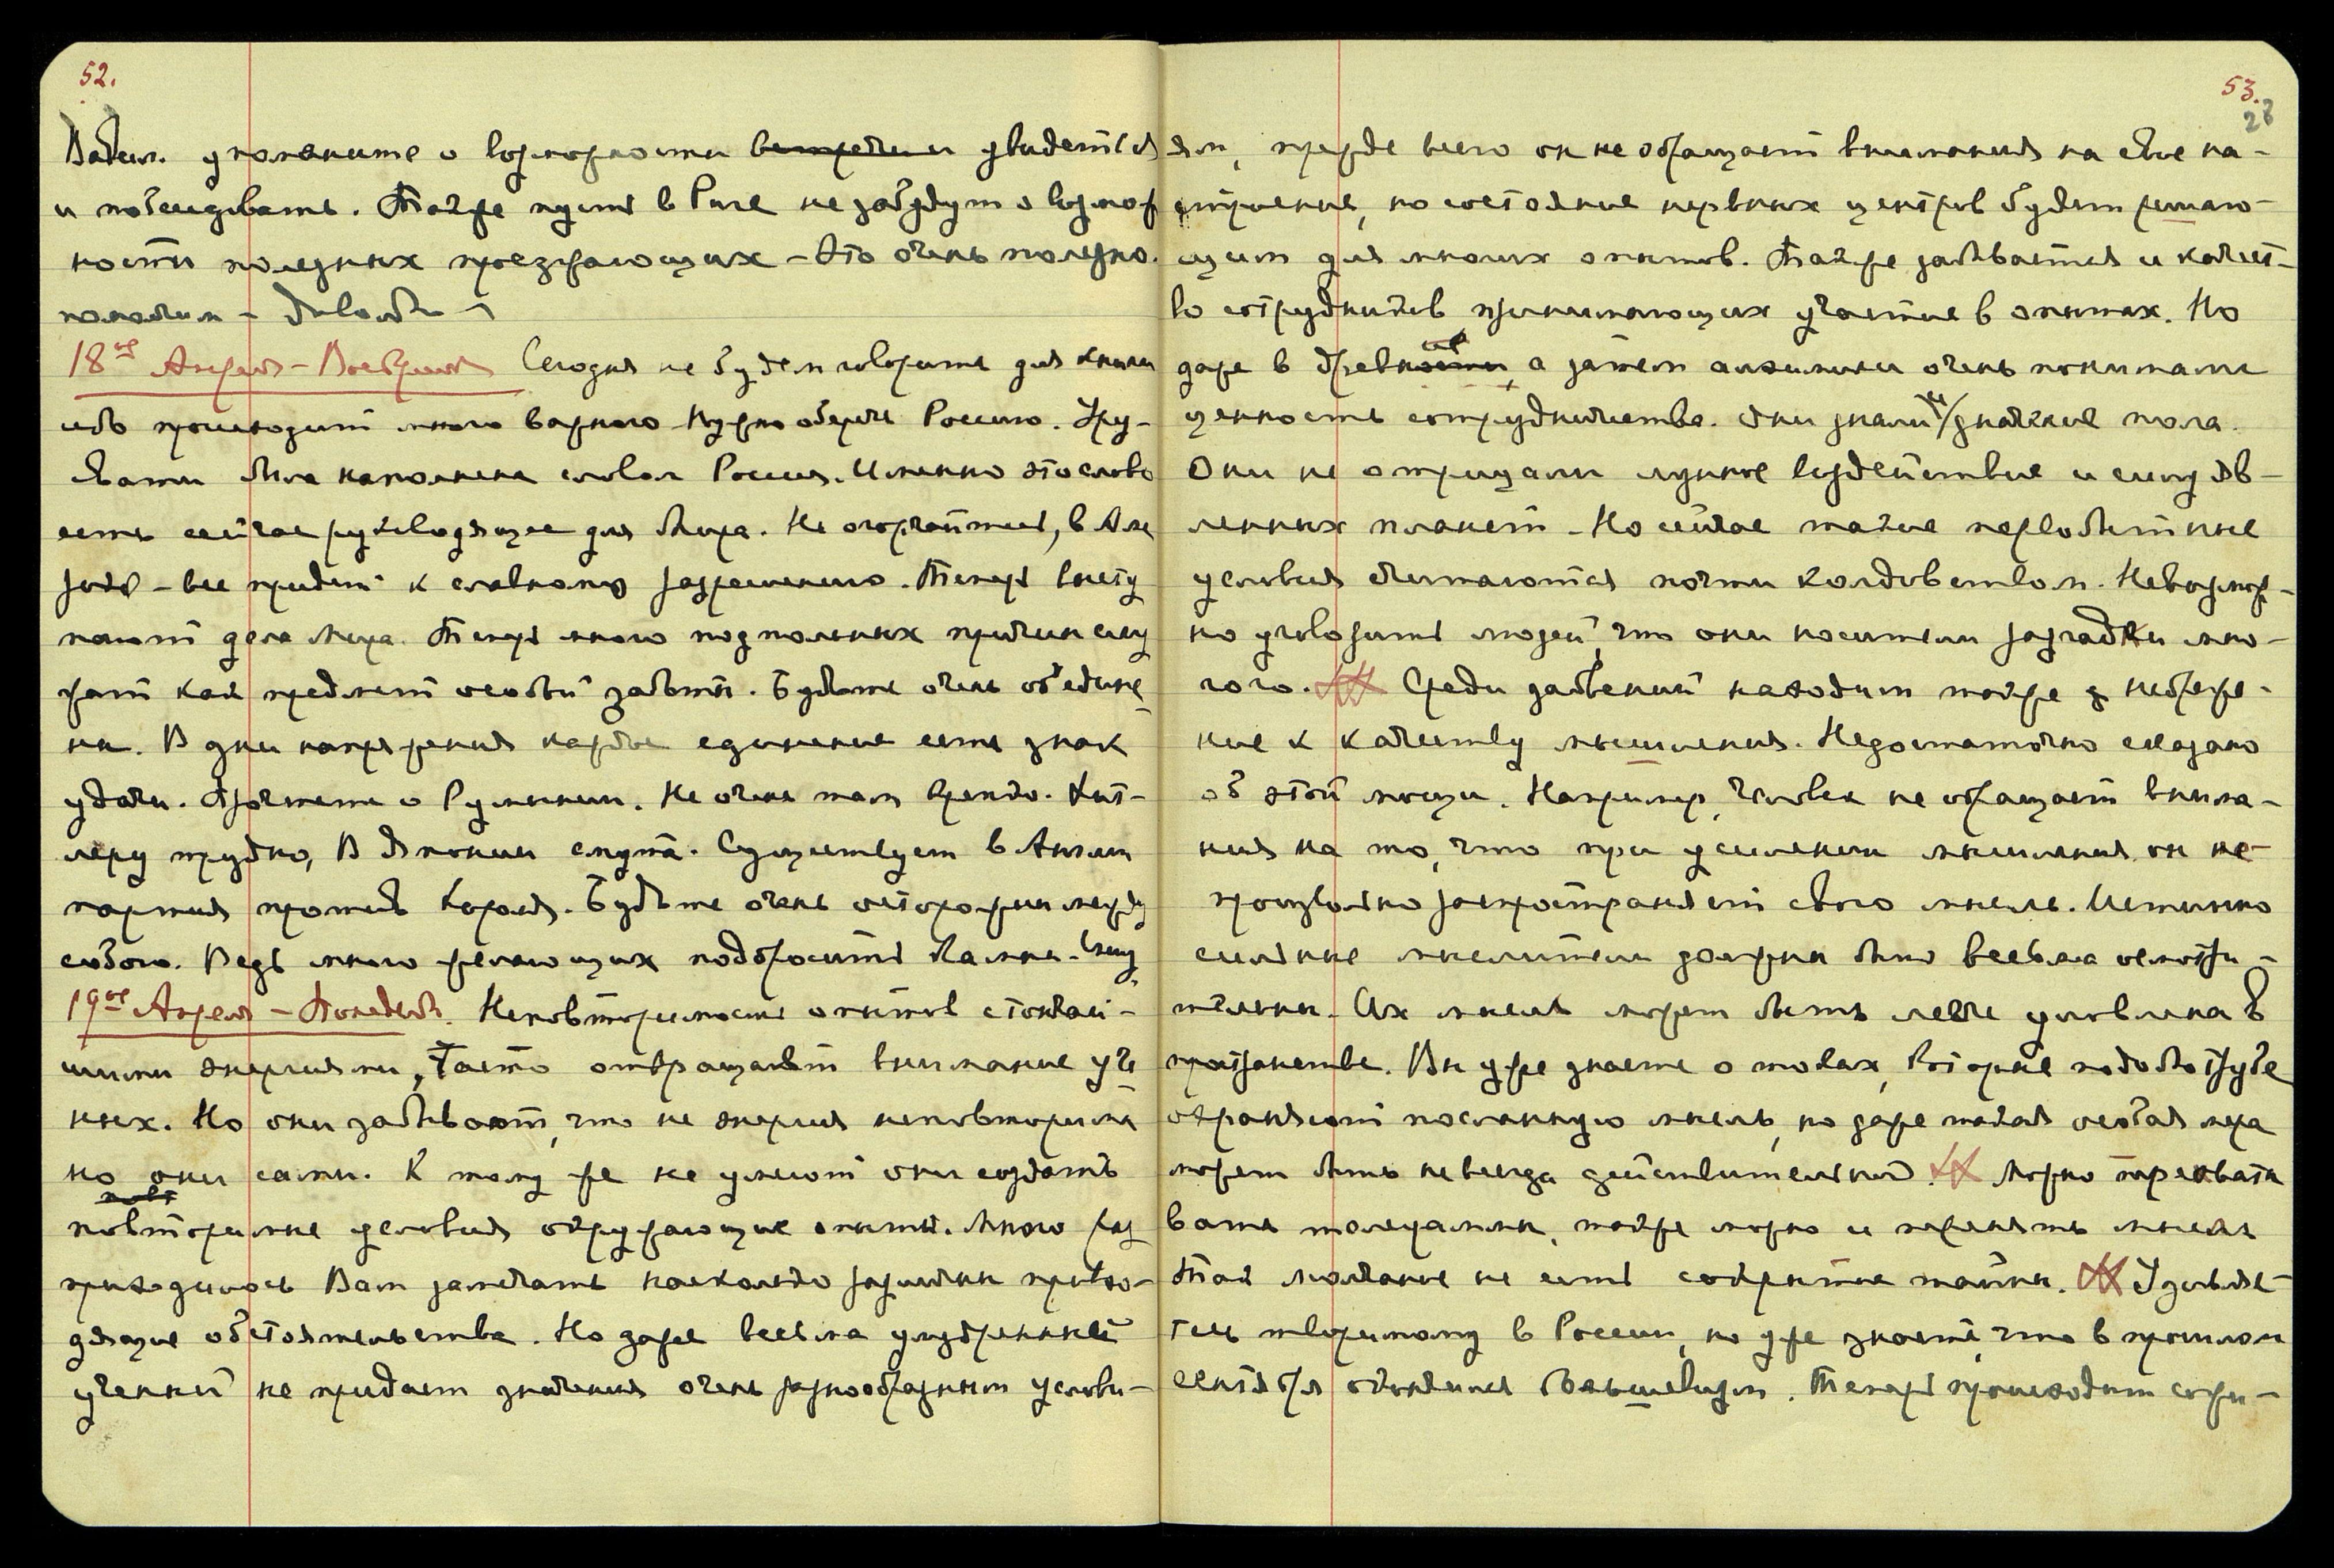 52.
Вадим. упомяните о возможности встречи и увидеться
и побеседовать. Также пусть в Риге не забудут о возмож
ности полезных проезжающих – Это очень полезно.
18ое Апреля – Воскресенье Сегодня не будем говорить для книги
ибо происходит много важного Нужно беречь Россию. Уру-
свати была наполнена словом Россия. Именно это слово
есть сейчас руководящее для Мира. Не огорчайтесь, в Аме
рике – все придет к славному разрешению. Теперь высту
пают дела Мира. Теперь много подпольных причин слу
жат как предмет особой заботы. Будьте очень объедине
ны. В дни напряжения каждое единение есть знак
удачи. Прочтите о Румынии. Не очень там крепко. Гит-
леру трудно, В Японии смута. Существует в Англии
партия против Короля. Будьте очень осторожны между
собою. Ведь много желающих подбросить
19ое Апреля – Понедель. Неповторимость опытов с тончай-
шими энергиями, часто отвращает внимание уче
ных. Но они забывают, что не энергия неповторима
но они сами. К тому же не умеют они создать
повторимые условия окружающие опыты. Много раз
приходилось Вам замечать насколько различны привхо-
дящие обстоятельства. Но даже весьма умудренный
ученый не придает значения очень разнообразным услови-
53.
28
ям, прежде всего он не обращает внимания на свое на-
строение, но состояние нервных центров будет решаю-
щим для многих опытов. Также забывается и качест-
во сотрудников принимающих участие в опытах. Но
даже в древности, а затем алхимики очень понимали
ценность сотрудничества. Они знали и значение пола.
Они не отрицали лунное воздействие и силу яв-
ленных планет – Но сейчас такие первобытные
условия считаются почти колдовством. Невозмож-
но уговорить людей, что они носители разгадки мно-
гого. Среди заблуждений находим также небреже-
ние к качеству мышления. Недостаточно сказано
об этой мощи. Например, человек не обращает внима-
ния на то, что при усилении мышления он не-
произвольно распространяет свою мысль. Истинно
сильные мыслители должны быть весьма осмотри-
тельны. Их мысль может быть легче уловлена в
пространстве. Вы уже знаете о токах, которые подобно трубе
охраняют посланную мысль, но даже такая особая мера
может быть не всегда действительной. Можно перехваты
вать телеграммы, также можно и перенять мысль
Так молчание не есть сокрытие тайны. Удивляе-
тесь творимому в России, но уже знаете, что в прошлом
сентябре окончился большевизм. Теперь происходит сожи-